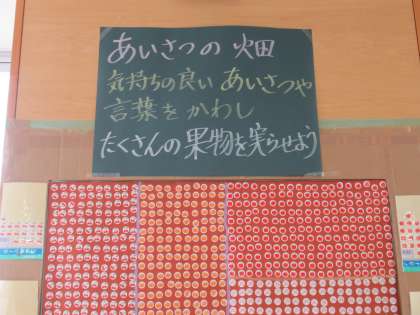 あいさつの 畑
気持ちの良い あいさつや
言葉を かわし
たくさんの 果物を実らせよう